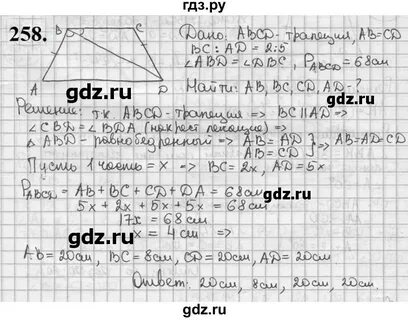 гдз.ру
258.
B C
A D
Дано: ABCD - трапеция, AB=CD
BC : AD = 2:5
∠ABD = ∠DBC, P_ABCD = 68см
Найти: AB, BC, CD, AD - ?
gdz.ru
gdz.ru
Решение: т.к. ABCD - трапеция => BC || AD =>
∠CBD = ∠BDA (накрест лежащие) =>
Δ ABD - равнобедренной => AB = AD } => AB=AD=CD
AB = CD
Пусть 1 часть = x => BC = 2x, AD = 5x
gdz.ru
gdz.ru
P_ABCD = AB + BC + CD + DA = 68см
5x + 2x + 5x + 5x = 68см
17x = 68см
x = 4 см =>
AB = 20см, BC = 8см, CD = 20см, AD = 20см
gdz.ru
gdz.ru
Ответ: 20см, 8см, 20см, 20см.